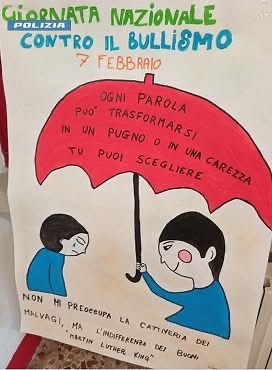 GIORNATA NAZIONALE
POLIZIA
CONTRO IL BULLISMO
7 FEBBRAIO
OGNI PAROLA
PUÒ TRASFORMARSI
IN UN PUGNO O IN UNA CAREZZA
TU PUOI SCEGLIERE
NON MI PREOCCUPA LA CATTIVERIA DEI
MALVAGI, MA L'INDIFFERENZA DEI BUONI
"MARTIN LUTHER KING"